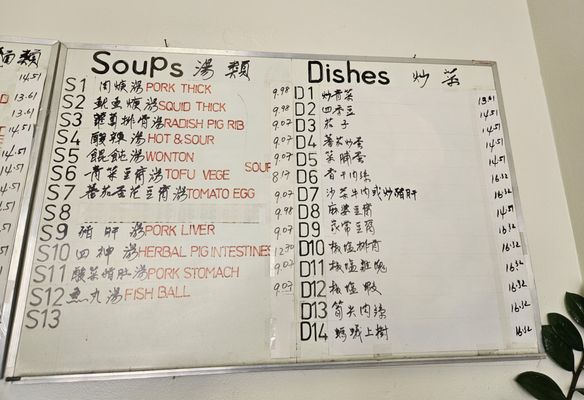 類
14.51
13.61
13.61
14.51
14.51
Soups 湯 類
S1 肉焿湯 PORK THICK 9.98
S2 魷魚焿湯 SQUID THICK 9.07
S3 蘿蔔排骨湯 RADISH PIG RIB 9.98
S4 酸辣湯 HOT & SOUR 9.07
S5 餛飩湯 WONTON 9.07
S6 青菜豆腐湯 TOFU VEGE SOUP 8.17
S7 番茄蛋花豆腐湯 TOMATO EGG 9.07
S8 9.98
S9 豬肝湯 PORK LIVER 9.07
S10 四神湯 HERBAL PIG INTESTINES
S11 酸菜豬肚湯 PORK STOMACH 9.07
S12 魚丸湯 FISH BALL 9.07
S13
Dishes 炒菜
D1 炒青菜 13.61
D2 四季豆 14.51
D3 茄子 14.51
D4 蕃茄炒蛋 14.51
D5 菜脯蛋 14.51
D6 香干肉絲 16.32
D7 沙茶牛肉或炒豬肝 16.32
D8 麻婆豆腐 14.51
D9 豆腐 16.32
D10 椒塩排骨 16.32
D11 椒塩雞塊 16.32
D12 椒塩蝦 16.32
D13 筍尖肉絲 16.32
D14 螞蟻上樹 16.32